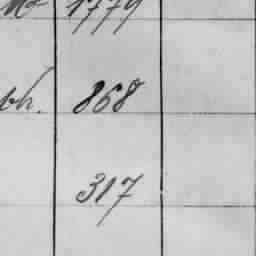 1779
bh. 868
317